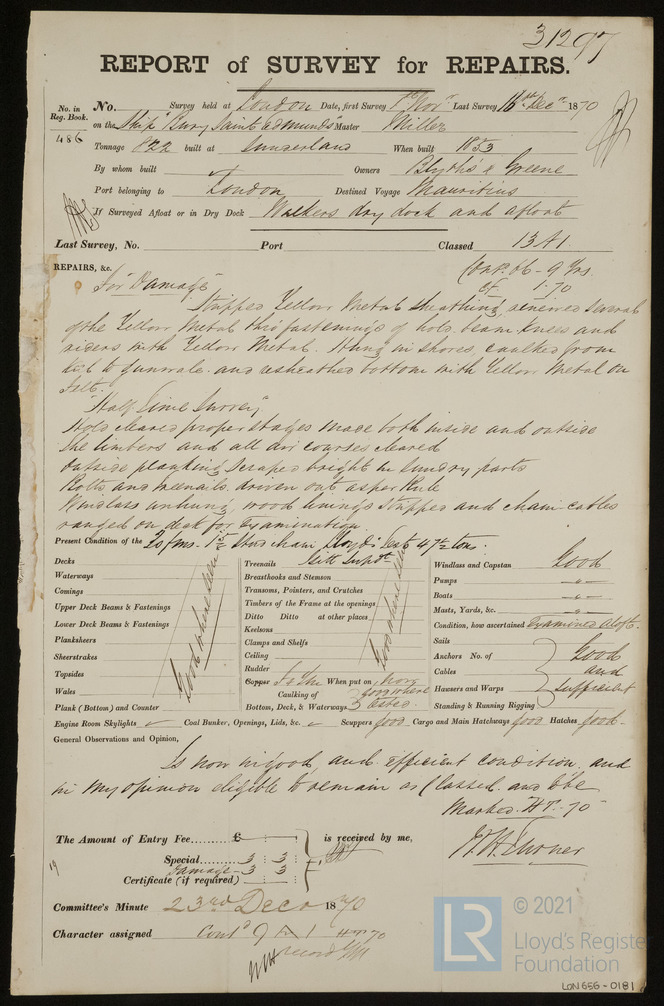 31297
REPORT of SURVEY for REPAIRS.
No. in Reg. Book. No. Survey held at London Date, first Survey 7th Novr Last Survey 16th Decr 1870
486 on the Ship "Bury Saint Edmunds" Master Miller
Tonnage 822 built at Sunderland When built 1853
By whom built Owners Blyths & Greene
Port belonging to London Destined Voyage Mauritius
If Surveyed Afloat or in Dry Dock Walkers dry dock and afloat
Last Survey, No. Port Classed 13 A1
REPAIRS, &c. Cont. 66 - 9 Yrs.
For "Damage" 1.70
Stripped Yellow Metal sheathing, renewed several
of the Yellow Metal thro' fastenings of hold beam knees and
riders with Yellow Metal. Hung in shores, caulked from
keel to gunwale and resheathed bottom with Yellow Metal on
Felt.
"Half Time Survey"
Hold cleared proper stages made both inside and outside
the limbers and all air courses cleared
Outside planking scraped bright in sundry parts
Bolts and treenails driven out as per Rule
Windlass unhung, wood linings stripped and chain cables
ranged on deck for examination.
Present Condition of the 20 fms. 1 5/8 Stud chain Lloyds test 47 1/2 tons.
Decks Treenails Windlass and Capstan Good
Waterways Breasthooks and Stemson Pumps "
Comings Transoms, Pointers, and Crutches Boats "
Upper Deck Beams & Fastenings Timbers of the Frame at the openings Masts, Yards, &c. "
Lower Deck Beams & Fastenings Ditto Ditto at other places Condition, how ascertained Examined Aloft.
Planksheers Keelsons Sails
Sheerstrakes Clamps and Shelfs Anchors No. of Good
Topsides Ceiling Cables and
Wales Rudder Hawsers and Warps sufficient
Good where seen Good where seen
Copper When put on Now Standing & Running Rigging
Plank (Bottom) and Counter Caulking of Bottom, Deck, & Waterways Good where tested
Engine Room Skylights Coal Bunker, Openings, Lids, &c. Scuppers Good Cargo and Main Hatchways Good Hatches Good
General Observations and Opinion,
Is now in good and efficient condition and
in my opinion eligible to remain as Classed and to be
Marked HT. 70
The Amount of Entry Fee......£ is received by me,
Special......... 3 : 3 :
Damage 3 3
Certificate (if required)
19
Committee's Minute 23rd Decr 1870
Character assigned Contd 9 A 1 HT 70
© 2021
LR Lloyd's Register
Foundation
LON656-0181